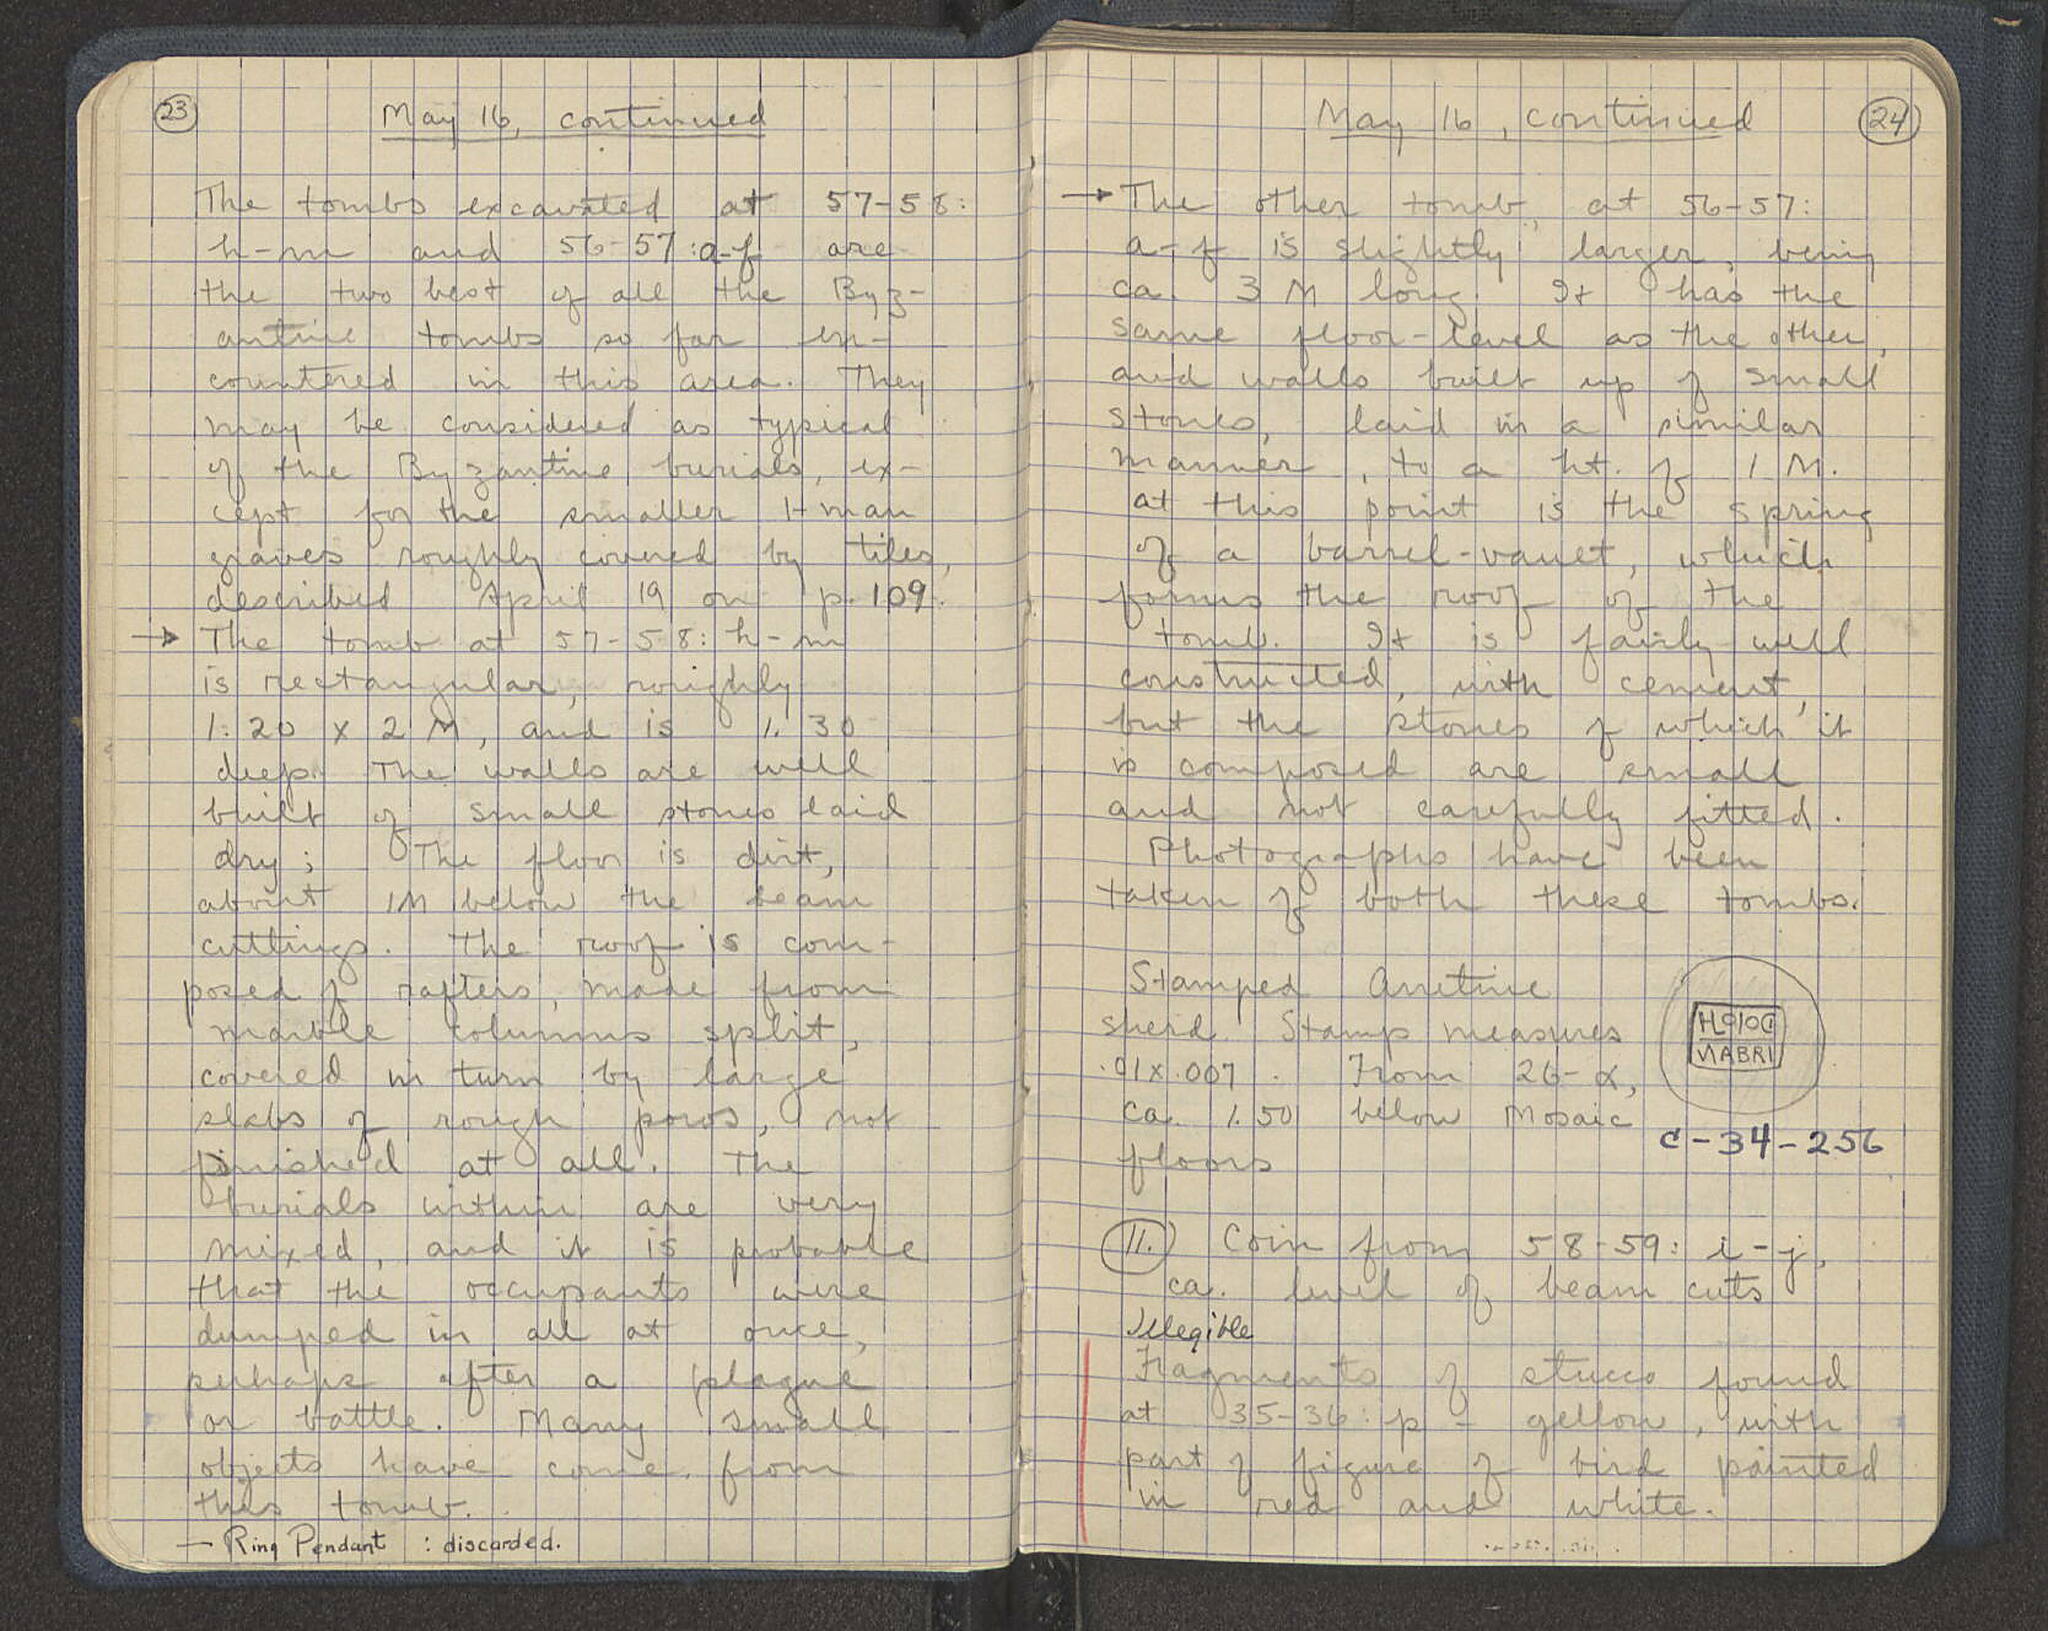 23
May 16, continued
The tombs excavated at 57-58:
h-m and 56-57:a-f are
the two best of all the Byz-
antine tombs so far en-
countered in this area. They
may be considered as typical
of the Byzantine burials, ex-
cept for the smaller 1-man
graves roughly covered by tiles,
described April 19 on p. 109.
→ The tomb at 57-58: h-m
is rectangular, roughly
1.20 x 2 M, and is 1.30
deep. The walls are well
built of small stones laid
dry; The floor is dirt,
about 1M below the beam
cuttings. The roof is com-
posed of rafters, made from
marble columns split,
covered in turn by large
slabs of rough poros, not
finished at all. The
burials within are very
mixed, and it is probable
that the occupants were
dumped in all at once,
perhaps after a plague
or battle. Many small
objects have come from
this tomb.
— Ring Pendant : discarded.
May 16, continued
24
→ The other tomb, at 56-57:
a-f is slightly larger, being
ca. 3 M long. It has the
same floor-level as the other,
and walls built up of small
stones, laid in a similar
manner, to a ht. of 1 M.
at this point is the spring
of a barrel-vault, which
forms the roof of the
tomb. It is fairly well
constructed, with cement,
but the stones of which it
is composed are small
and not carefully fitted.
Photographs have been
taken of both these tombs.
Stamped Arretine
sherd. Stamp measures
.01x.007. From 26-α,
ca. 1.50 below Mosaic
floors
VABRI
C-34-256
11. Coin from 58-59: i-j,
ca. level of beam cuts
Illegible
Fragments of stucco found
at 35-36: p - yellow, with
part of figure of bird painted
in red and white.